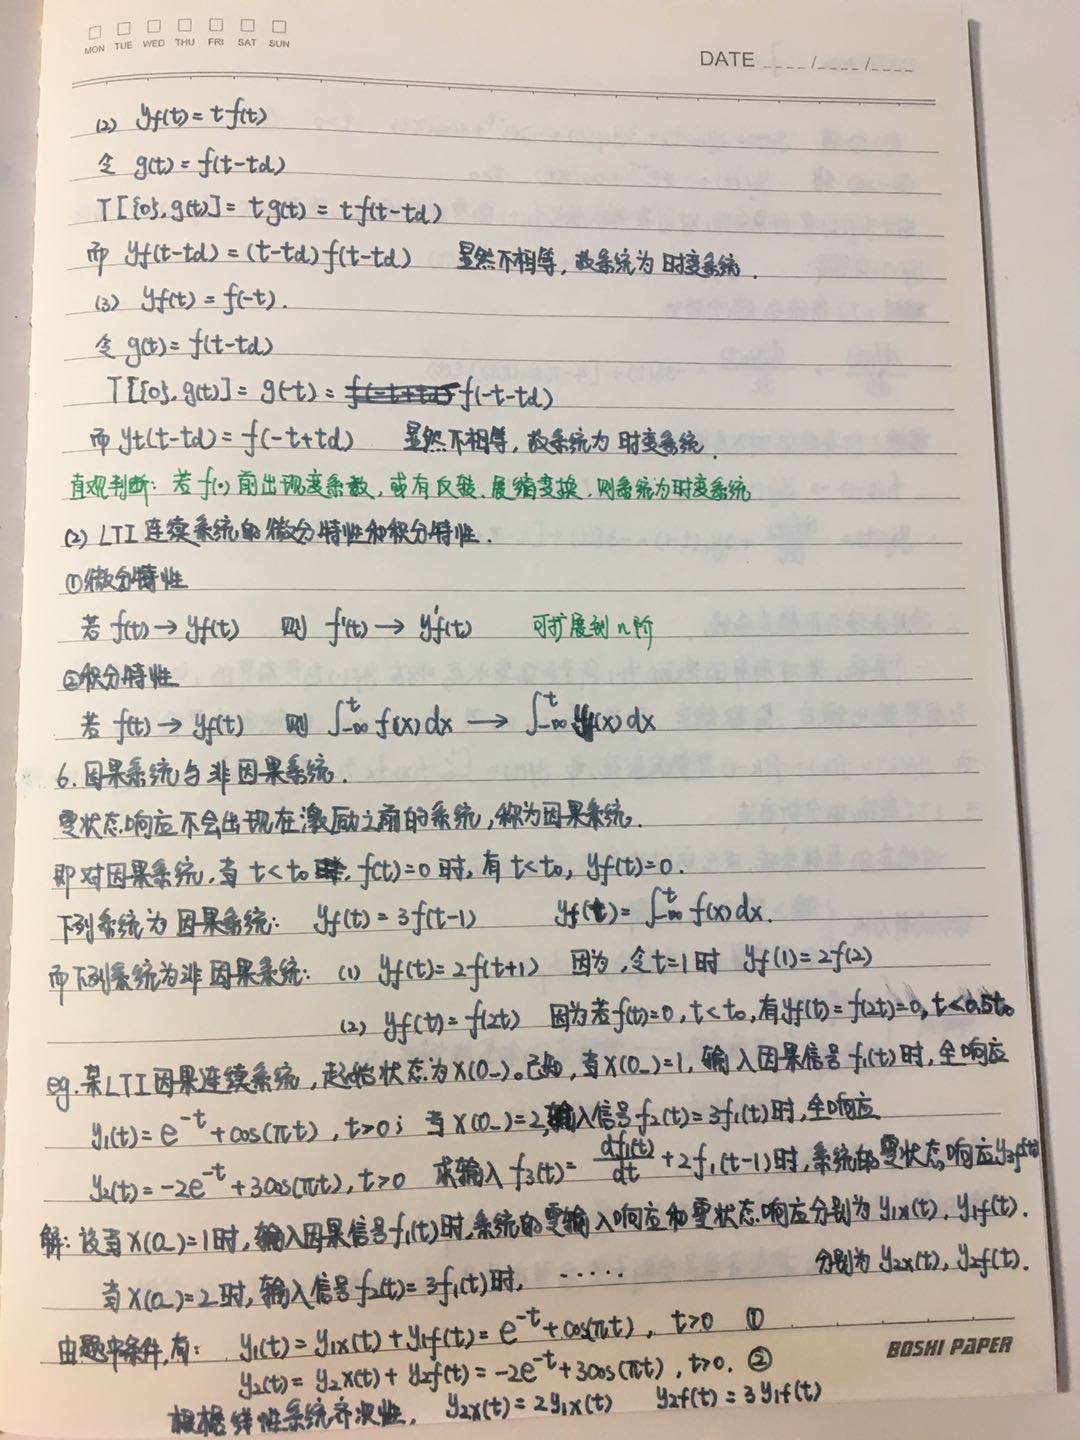 MON TUE WED THU FRI SAT SUN
DATE ____/____/____
(2) yf(t)=tf(t)
令 g(t)=f(t-td)
T[{0},g(t)]=tg(t)=tf(t-td)
而 yf(t-td)=(t-td)f(t-td) 显然不相等,故系统为时变系统.
(3) yf(t)=f(-t).
令 g(t)=f(t-td)
T[{0},g(t)]=g(-t)=f(-t-td)
而 yt(t-td)=f(-t+td) 显然不相等,故系统为时变系统.
直观判断:若f(·)前出现变系数,或有反转、展缩变换,则系统为时变系统
(2) LTI连续系统的微分特性和积分特性.
①微分特性
若 f(t)→yf(t) 则 f'(t)→y'f(t) 可扩展到n阶
②积分特性
若 f(t)→yf(t) 则 ∫_{-∞}^{t} f(x)dx → ∫_{-∞}^{t} yf(x)dx
6.因果系统与非因果系统.
零状态响应不会出现在激励之前的系统,称为因果系统.
即对因果系统,当t<t₀,f(t)=0时,有t<t₀,yf(t)=0.
下列系统为因果系统: yf(t)=3f(t-1) yf(t)=∫_{-∞}^{t} f(x)dx.
而下列系统为非因果系统: (1) yf(t)=2f(t+1) 因为,令t=1时 yf(1)=2f(2)
(2) yf(t)=f(2t) 因为若f(t)=0,t<t₀,有yf(t)=f(2t)=0,t<0.5t₀
eg.某LTI因果连续系统,起始状态为X(0_)。已知,当X(0_)=1,输入因果信号f₁(t)时,全响应
y₁(t)=e^{-t}+cos(πt),t>0; 当X(0_)=2,输入信号f₂(t)=3f₁(t)时,全响应
y₂(t)=-2e^{-t}+3cos(πt),t>0 求输入f₃(t)=df₁(t)/dt+2f₁(t-1)时,系统的零状态响应y₃f(t)
解:设当X(0_)=1时,输入因果信号f₁(t)时,系统的零输入响应和零状态响应分别为y₁x(t),y₁f(t).
当X(0_)=2时,输入信号f₂(t)=3f₁(t)时,······分别为y₂x(t),y₂f(t).
由题中条件,有: y₁(t)=y₁x(t)+y₁f(t)=e^{-t}+cos(πt),t>0 ①
y₂(t)=y₂x(t)+y₂f(t)=-2e^{-t}+3cos(πt),t>0. ②
BOSHI PAPER
根据线性系统齐次性, y₂x(t)=2y₁x(t) y₂f(t)=3y₁f(t)